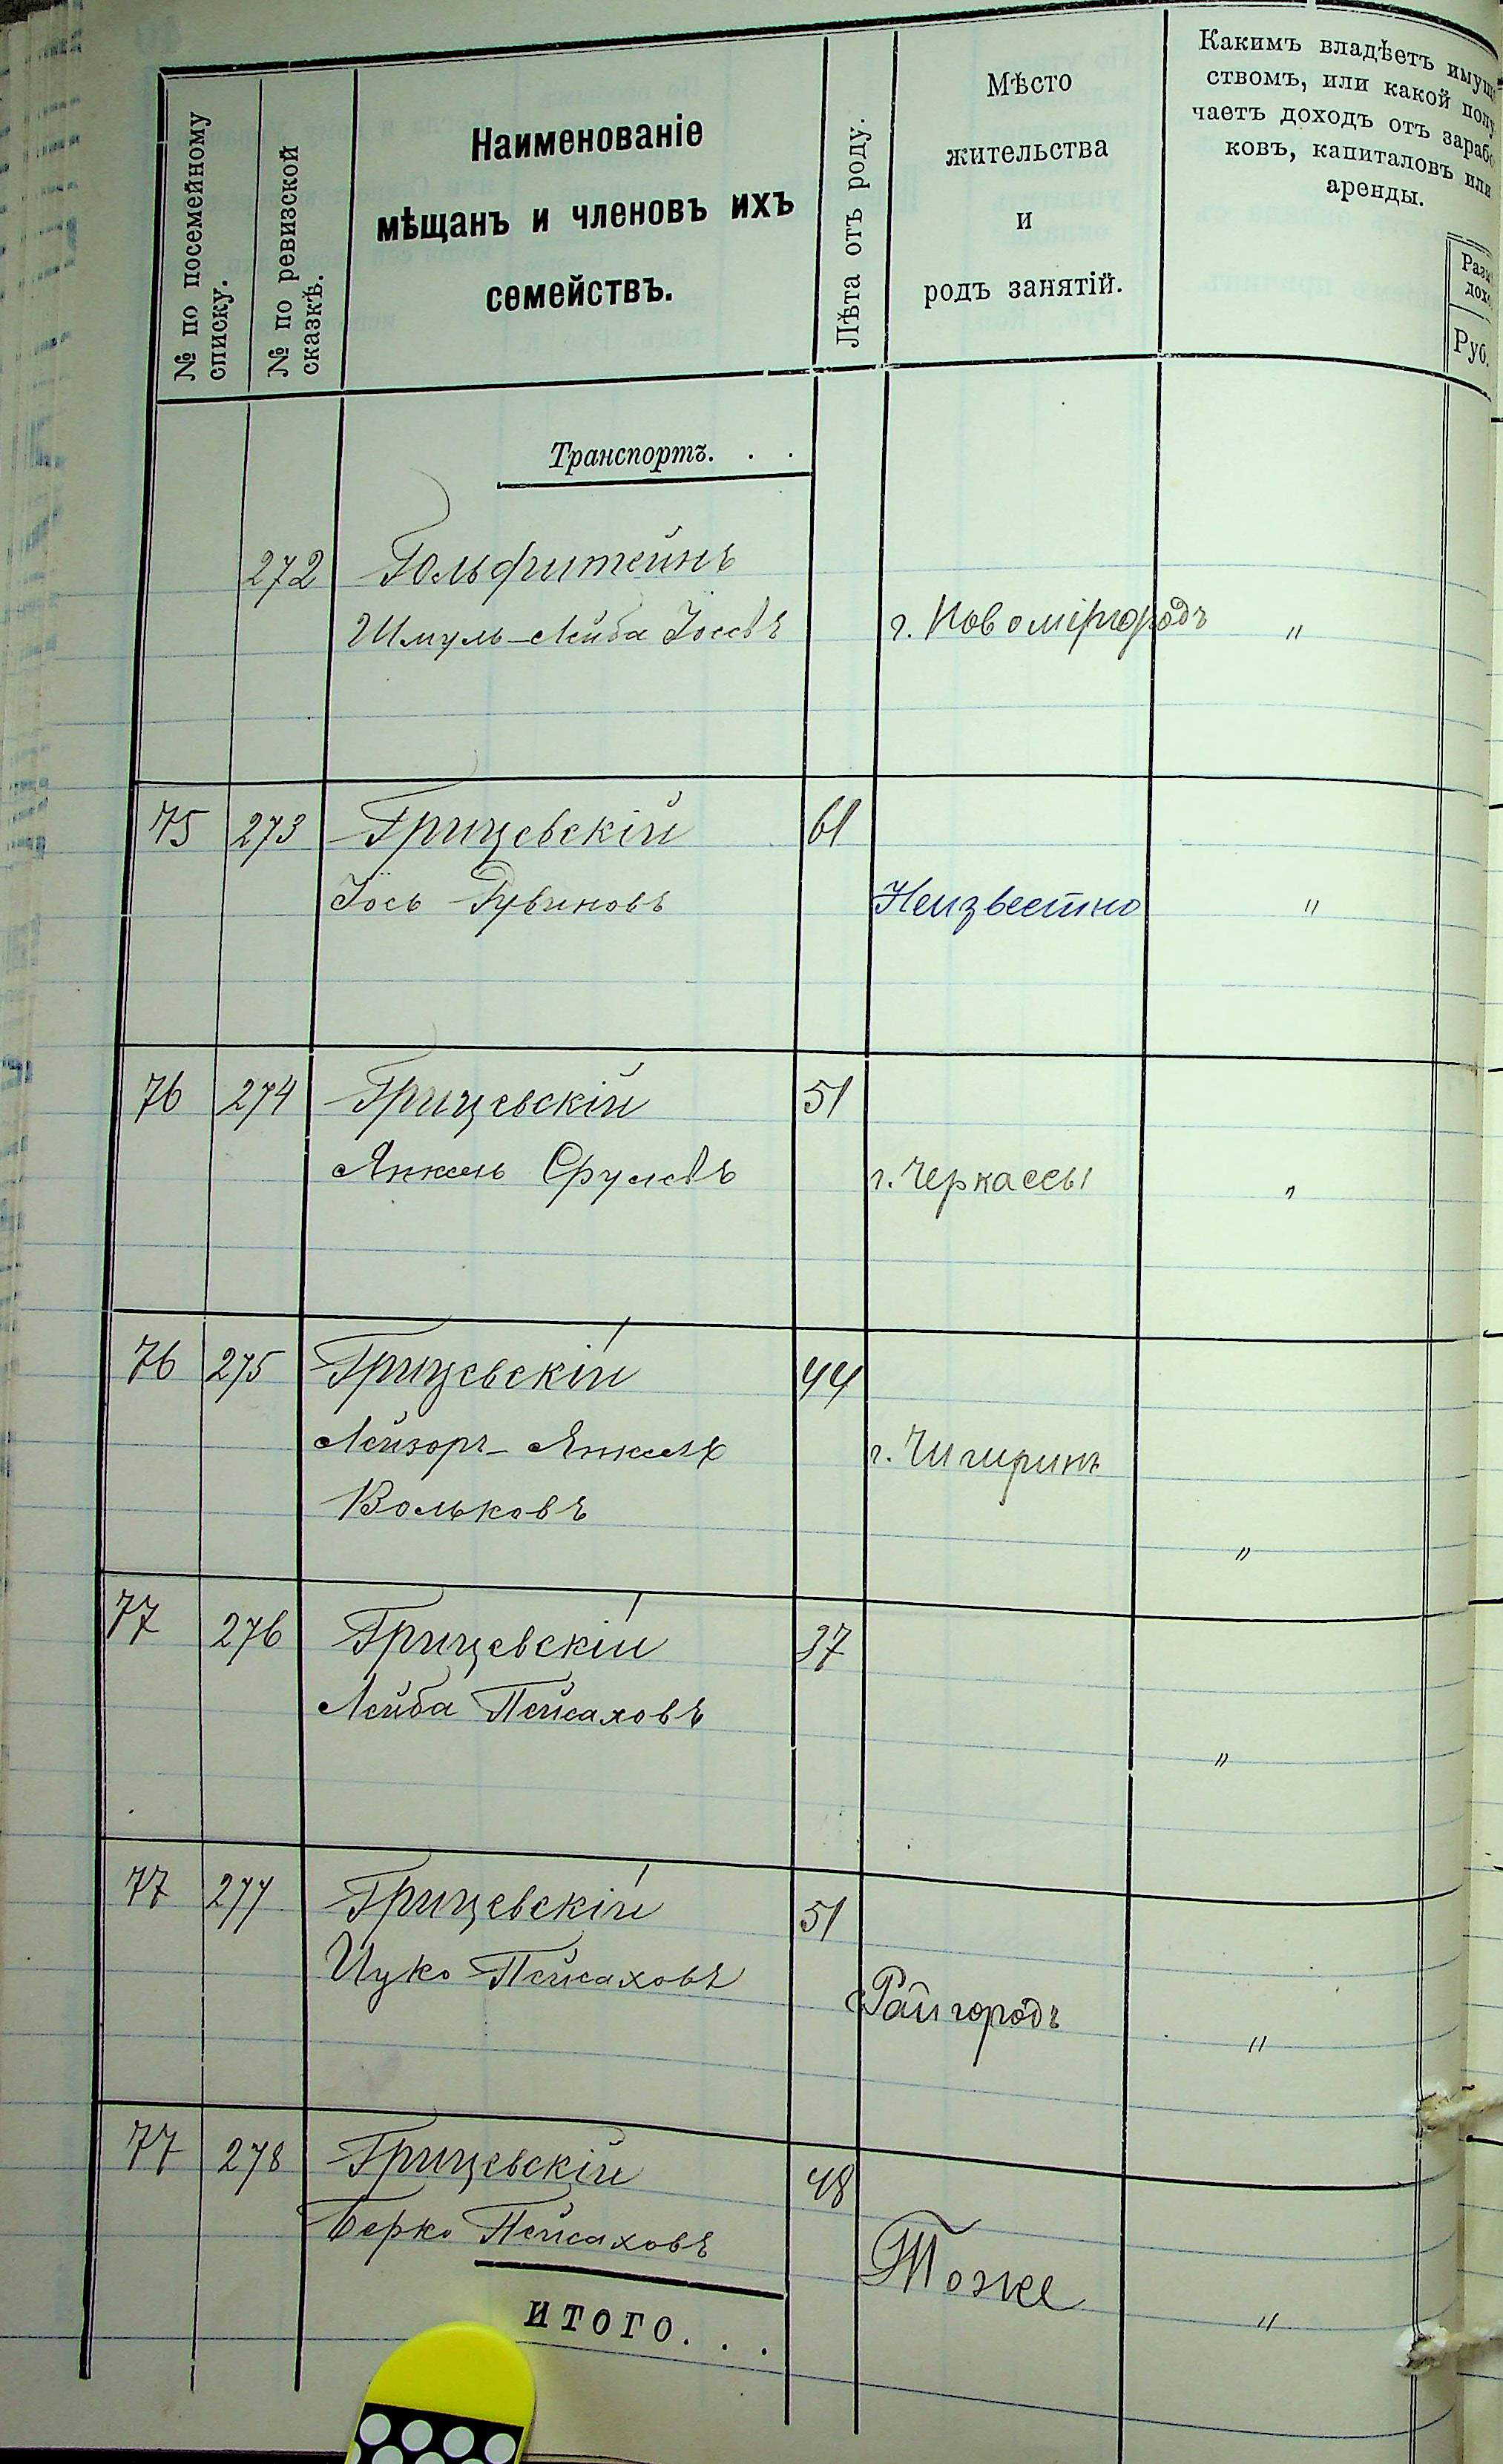 № по посемейному
списку.
№ по ревизской
сказкѣ.
Наименованіе
мѣщанъ и членовъ ихъ
семействъ.
Лѣта отъ роду.
Мѣсто
жительства
и
родъ занятій.
Какимъ владѣетъ имуще
ствомъ, или какой полу
чаетъ доходъ отъ зарабо
ковъ, капиталовъ или
аренды.
Разм
дохо
Руб.
Транспортъ. . .
272 Гольфштейнъ
Шмуль-Лейба Іосевъ г. Новоміргородъ "
75 273 Грицевскій 61
Іось Рувиновъ Неизвестно "
76 274 Грицевскій 51
Янкель Срулевъ г. Черкассы "
76 275 Грицевскій 44
Лейзоръ-Янкель г. Чигиринъ
Вольковъ "
77 276 Грицевскій 37
Лейба Пейсаховъ "
77 277 Грицевскій 51
Ицко Пейсаховъ Райгородъ "
77 278 Грицевскій 48
Берко Пейсаховъ Тоже "
итого. . .